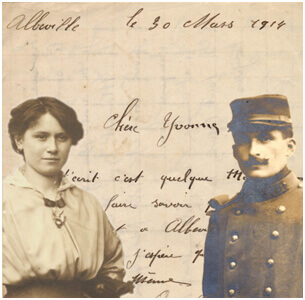 Abbeville le 30 Mars 1914
Chère Yvonne
écrit c'est quelque
faire savoir
t a Abbev
j'espère
même